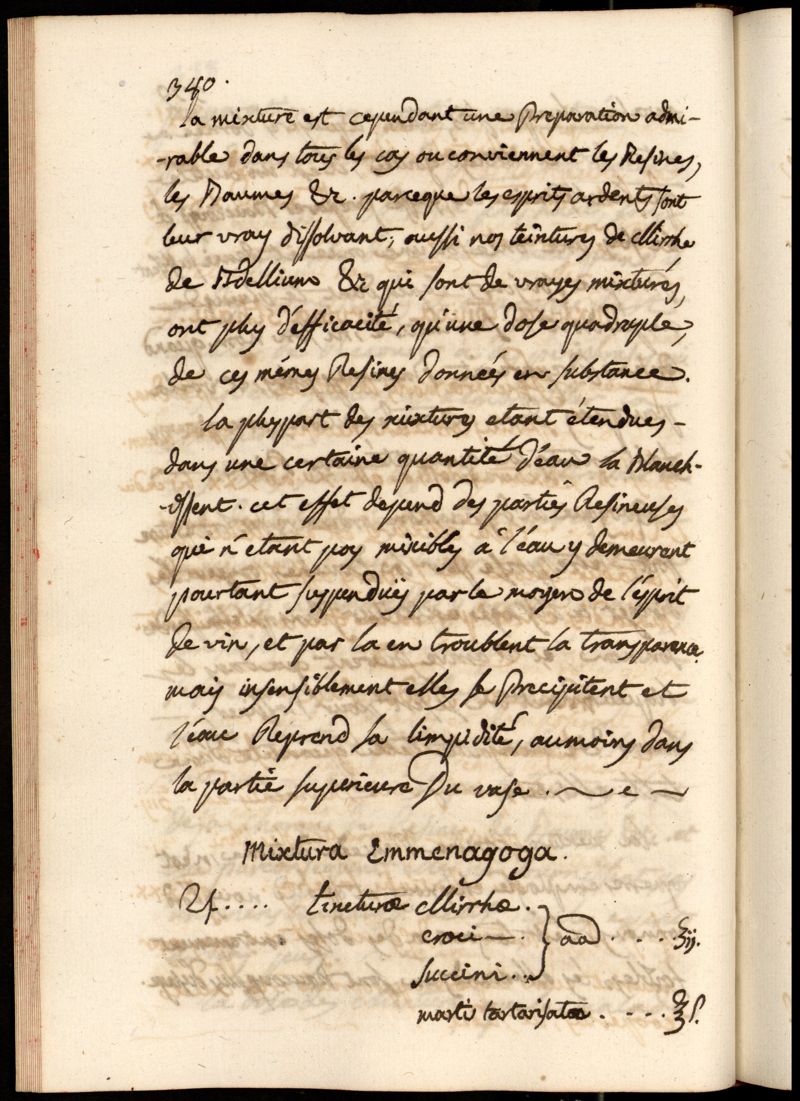 340.
la mixture est cependant une Preparation admi-
-rable dans tous les cas ou conviennent les Resines,
les Baumes &c. parceque les esprits ardents sont
leur vray dissolvant, aussi nos teintures de Mirrhe
de Bdellium &c qui sont de vrayes mixturés,
ont plus d'efficacité, qu'une dose quadruple,
de ces mémes Resines donneés en substance.
la pluspart des mixtures etant étendues -
dans une certaine quantité d'éau la Blanch-
-issent. cet effet depend des partiés Resineuses
qui n'etant pas miscibles a l'éau y demeurent
pourtant suspenduës par le moyen de l'ésprit
de vin, et par la en troublent la transparence
mais insensiblement elles se Precipitent et
l'éau Reprend sa limpidité, aumoins dans
la partie superieure Du vase.
Mixtura Emmenagoga.
♃.... tincturæ Mirrhæ.
croci —. } aa .... ʒij.
succini..
marti tartarisatæ .... ℥ß.